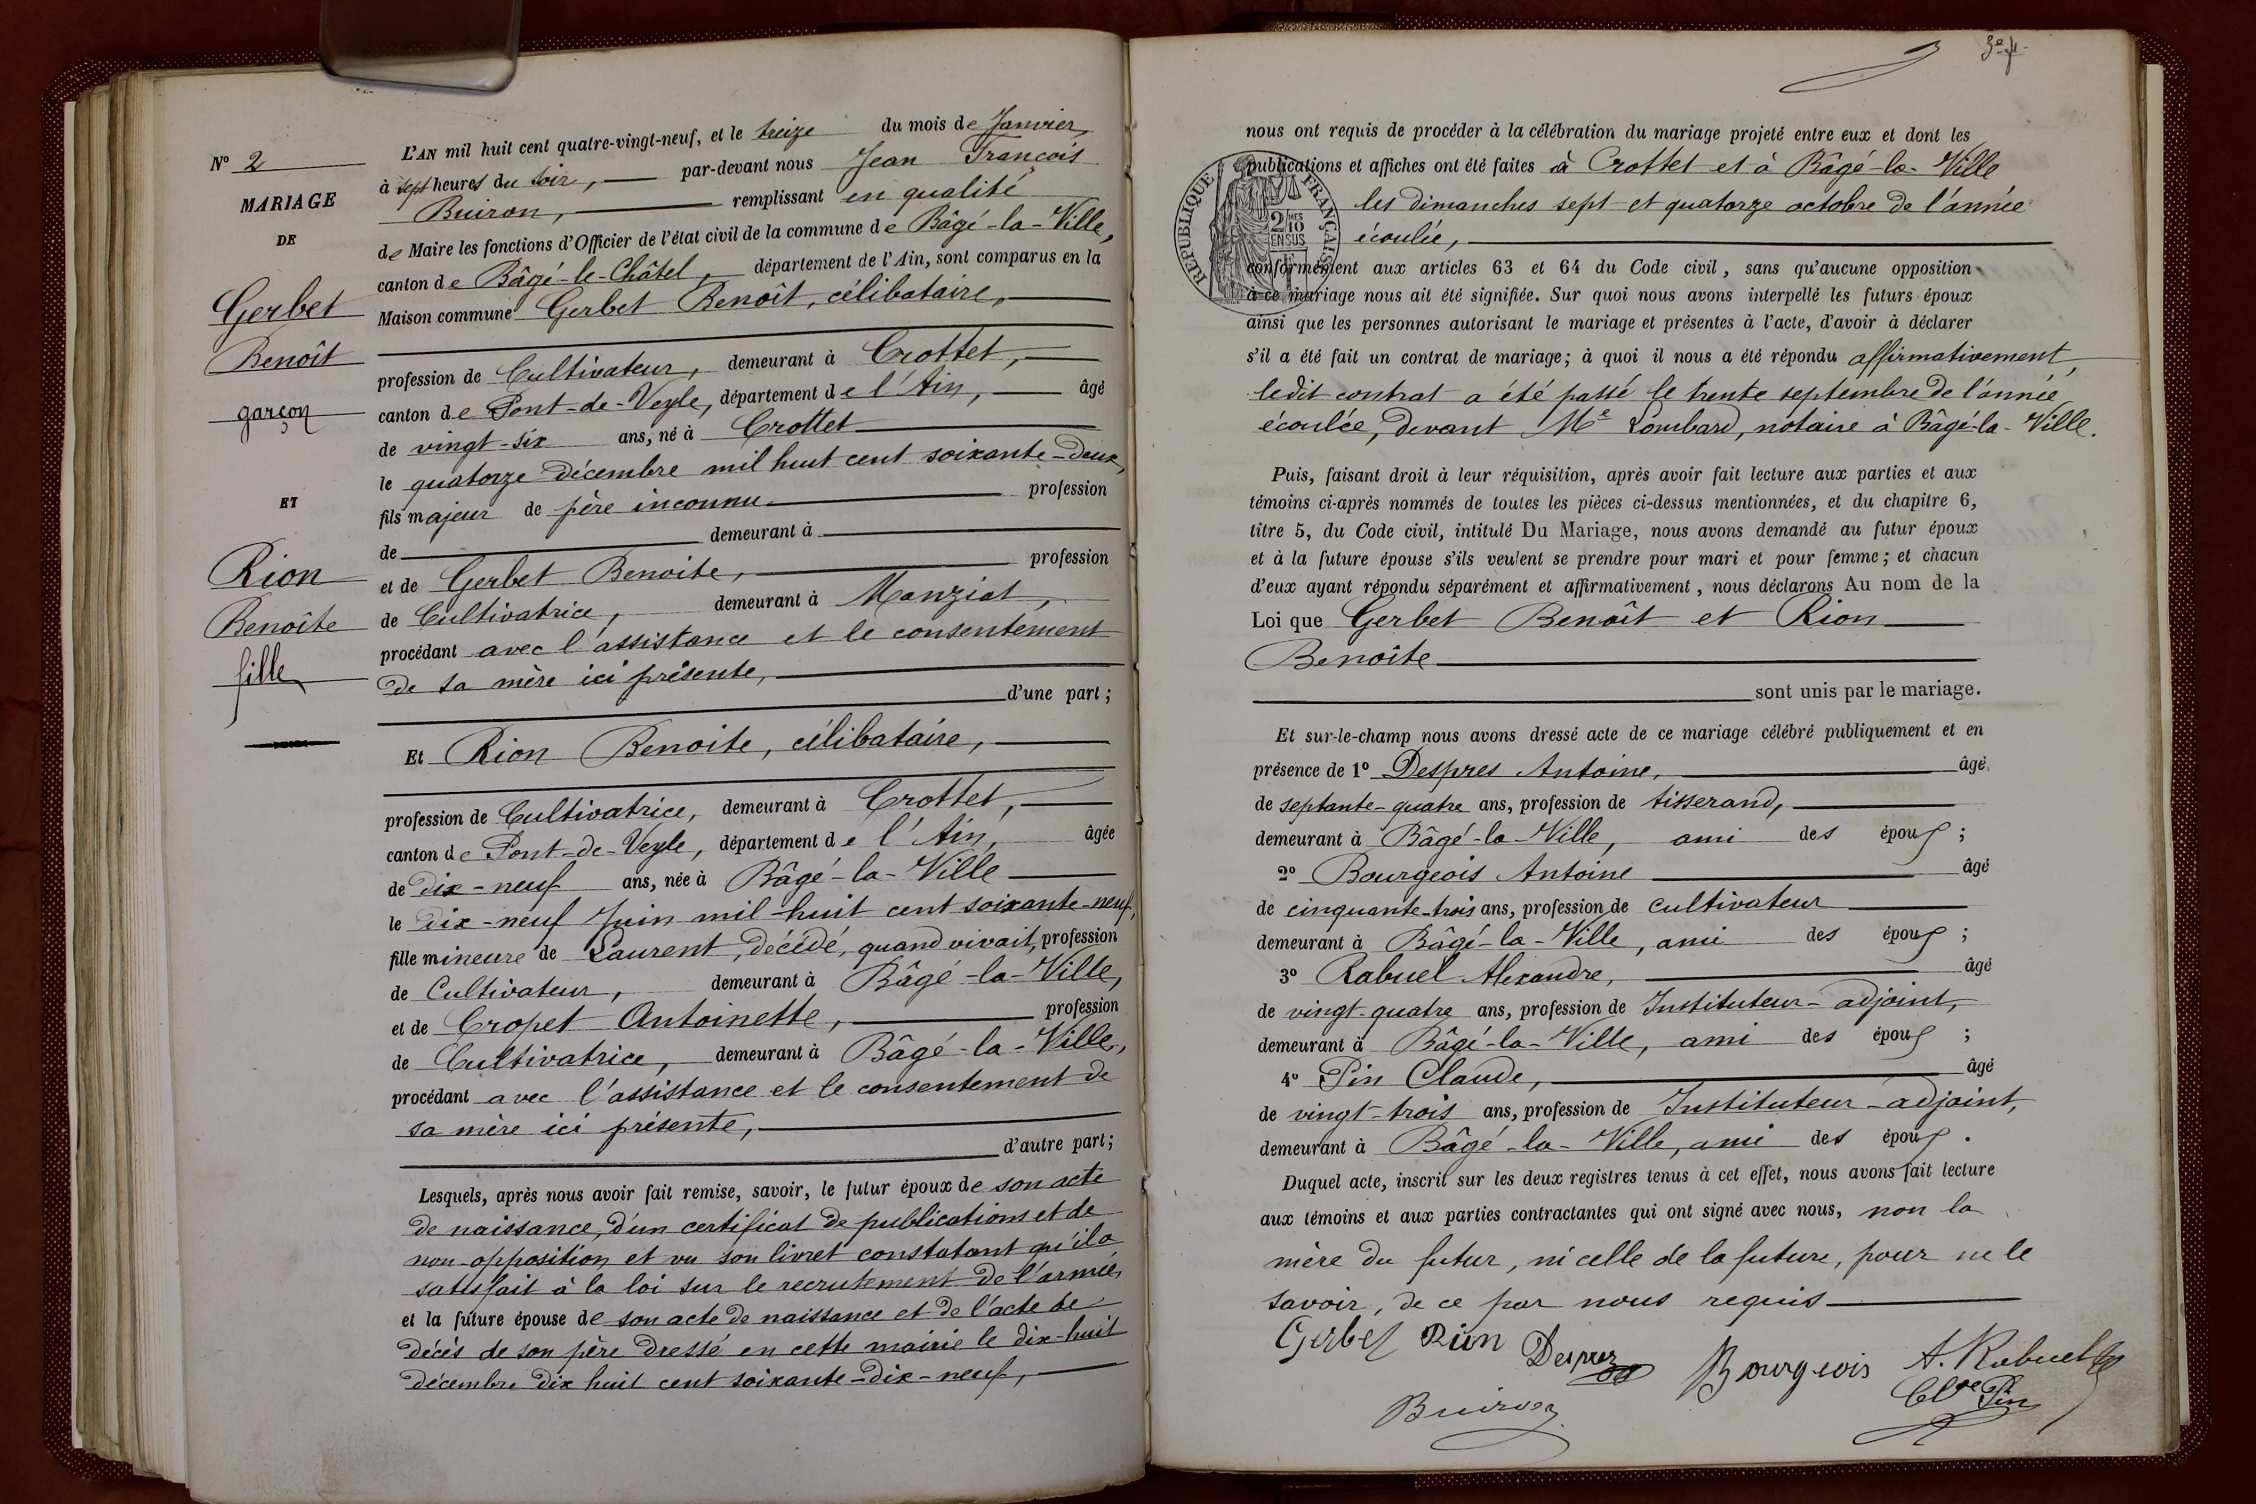 N° 2
MARIAGE
DE
Gerbet
Benoît
garçon
ET
Rion
Benoîte
fille
L'AN mil huit cent quatre-vingt-neuf, et le treize du mois de Janvier,
à sept heures du soir, par-devant nous Jean François
Buiron, remplissant en qualité
de Maire les fonctions d'Officier de l'état civil de la commune de Bâgé-la-Ville,
canton de Bâgé-le-Châtel, département de l'Ain, sont comparus en la
Maison commune Gerbet Benoît, célibataire,
profession de Cultivateur, demeurant à Crottet,
canton de Pont-de-Veyle, département de l'Ain, âgé
de vingt-six ans, né à Crottet
le quatorze décembre mil huit cent soixante-deux,
fils majeur de père inconnu profession
de demeurant à
et de Gerbet Benoite, profession
de Cultivatrice, demeurant à Manziat,
procédant avec l'assistance et le consentement
de sa mère ici présente,
d'une part;
Et Rion Benoite, célibataire,
profession de Cultivatrice, demeurant à Crottet,
canton de Pont-de-Veyle, département de l'Ain, âgée
de dix-neuf ans, née à Bâgé-la-Ville
le dix-neuf Juin mil huit cent soixante-neuf,
fille mineure de Laurent, décédé, quand vivait, profession
de Cultivateur, demeurant à Bâgé-la-Ville,
et de Cropet Antoinette, profession
de Cultivatrice, demeurant à Bâgé-la-Ville,
procédant avec l'assistance et le consentement de
sa mère ici présente,
d'autre part;
Lesquels, après nous avoir fait remise, savoir, le futur époux de son acte
de naissance, d'un certificat de publications et de
non-opposition et vu son livret constatant qu'il a
satisfait à la loi sur le recrutement de l'armée,
et la future épouse de son acte de naissance et de l'acte de
décès de son père dressé en cette mairie le dix-huit
décembre dix huit cent soixante-dix-neuf,
3e f.
nous ont requis de procéder à la célébration du mariage projeté entre eux et dont les
publications et affiches ont été faites à Crottet et à Bâgé-la-Ville
les dimanches sept et quatorze octobre de l'année
écoulée,
RÉPUBLIQUE FRANÇAISE
2/10 MES EN SUS
conformément aux articles 63 et 64 du Code civil, sans qu'aucune opposition
à ce mariage nous ait été signifiée. Sur quoi nous avons interpellé les futurs époux
ainsi que les personnes autorisant le mariage et présentes à l'acte, d'avoir à déclarer
s'il a été fait un contrat de mariage; à quoi il nous a été répondu affirmativement,
ledit contrat a été passé le trente septembre de l'année
écoulée, devant Me Lombard, notaire à Bâgé-la-Ville.
Puis, faisant droit à leur réquisition, après avoir fait lecture aux parties et aux
témoins ci-après nommés de toutes les pièces ci-dessus mentionnées, et du chapitre 6,
titre 5, du Code civil, intitulé Du Mariage, nous avons demandé au futur époux
et à la future épouse s'ils veulent se prendre pour mari et pour femme; et chacun
d'eux ayant répondu séparément et affirmativement, nous déclarons Au nom de la
Loi que Gerbet Benoît et Rion
Benoîte
sont unis par le mariage.
Et sur-le-champ nous avons dressé acte de ce mariage célébré publiquement et en
présence de 1° Despres Antoine, âgé
de septante-quatre ans, profession de tisserand,
demeurant à Bâgé-la-Ville, ami des époux;
2° Bourgeois Antoine âgé
de cinquante-trois ans, profession de cultivateur
demeurant à Bâgé-la-Ville, ami des époux;
3° Rabuel Alexandre, âgé
de vingt-quatre ans, profession de Instituteur-adjoint,
demeurant à Bâgé-la-Ville, ami des époux;
4° Pin Claude, âgé
de vingt-trois ans, profession de Instituteur-adjoint,
demeurant à Bâgé-la-Ville, ami des époux.
Duquel acte, inscrit sur les deux registres tenus à cet effet, nous avons fait lecture
aux témoins et aux parties contractantes qui ont signé avec nous, non la
mère du futur, ni celle de la future, pour ne le
savoir, de ce par nous requis
Gerbet Rion Desprez Bourgeois A. Rabuel
Buiron Cl.de Pin